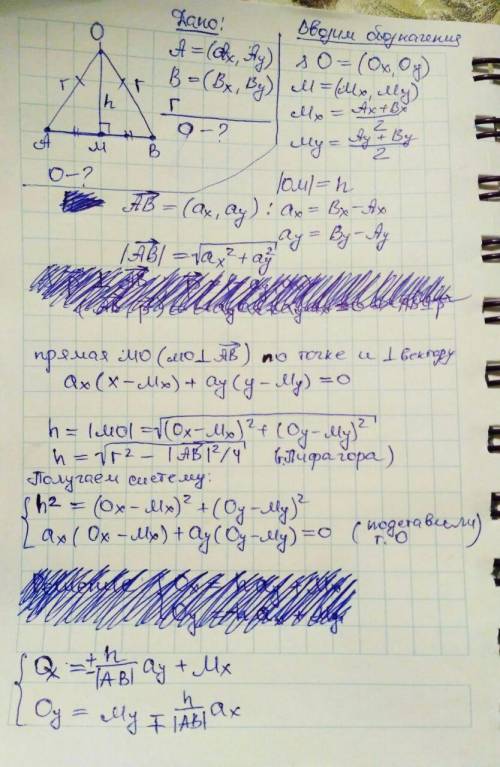 Дано:
A = (Ax, Ay)
B = (Bx, By)
r
O - ?
Вводим обозначения
O = (Ox, Oy)
M = (Mx, My)
Mx = Ax + Bx / 2
My = Ay + By / 2
|OM| = h
O
r
r
h
A
M
B
O - ?
AB = (ax, ay) : ax = Bx - Ax
ay = By - Ay
|AB| = √ax² + ay²
прямая MO (MO ⊥ AB) по точке и ⊥ вектору
ax (x - Mx) + ay (y - My) = 0
h = |MO| = √(Ox - Mx)² + (Oy - My)²
h = √r² - |AB|²/4 (т. Пифагора)
Получаем систему:
h² = (Ox - Mx)² + (Oy - My)²
ax (Ox - Mx) + ay (Oy - My) = 0 (подставили
т. O)
Ox = ± h/|AB| ay + Mx
Oy = My ∓ h/|AB| ax